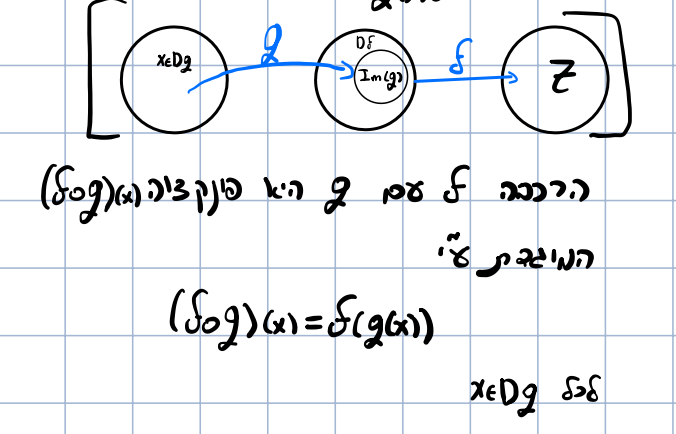 x∈Dg g Df Im(g) f Z
הרכבה f עם g היא פונקציה (f∘g)(x)
המוגדרת ע"י
(f∘g)(x)=f(g(x))
לכל x∈Dg